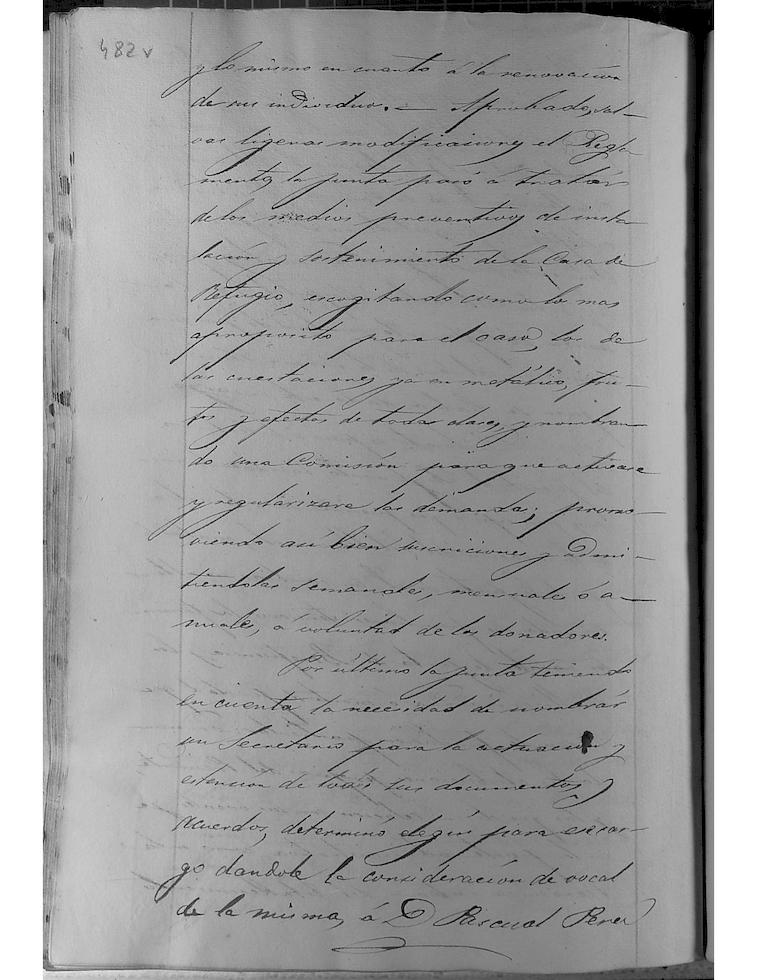 482v
y lo mismo en cuanto á la renovación
de sus individuos. — Aprobado, sal-
vas ligeras modificaciones el Regla
mento, la junta pasó á tratár
de los medios preventivos de insta
lación y sostenimiento de la Casa de
Refugio, escogitando como lo mas
aproposito para el caso, los de
las cuestaciones ya en metálico, fru-
tos y efectos de todas clases, y nombran
do una Comisión para que activase
y regularizara las demandas; promo-
viendo asi bien suscriciones y admi-
tiendolas semanales, mensuales ó a-
nuales, á voluntad de los donadores.
Por último la junta teniendo
en cuenta la necesidad de nombrár
un Secretario para la actuacion y
estencion de todos sus documentos y
acuerdos, determinó elegir para ese car-
go dandole la consideración de vocal
de la misma, á D Pascual Perez